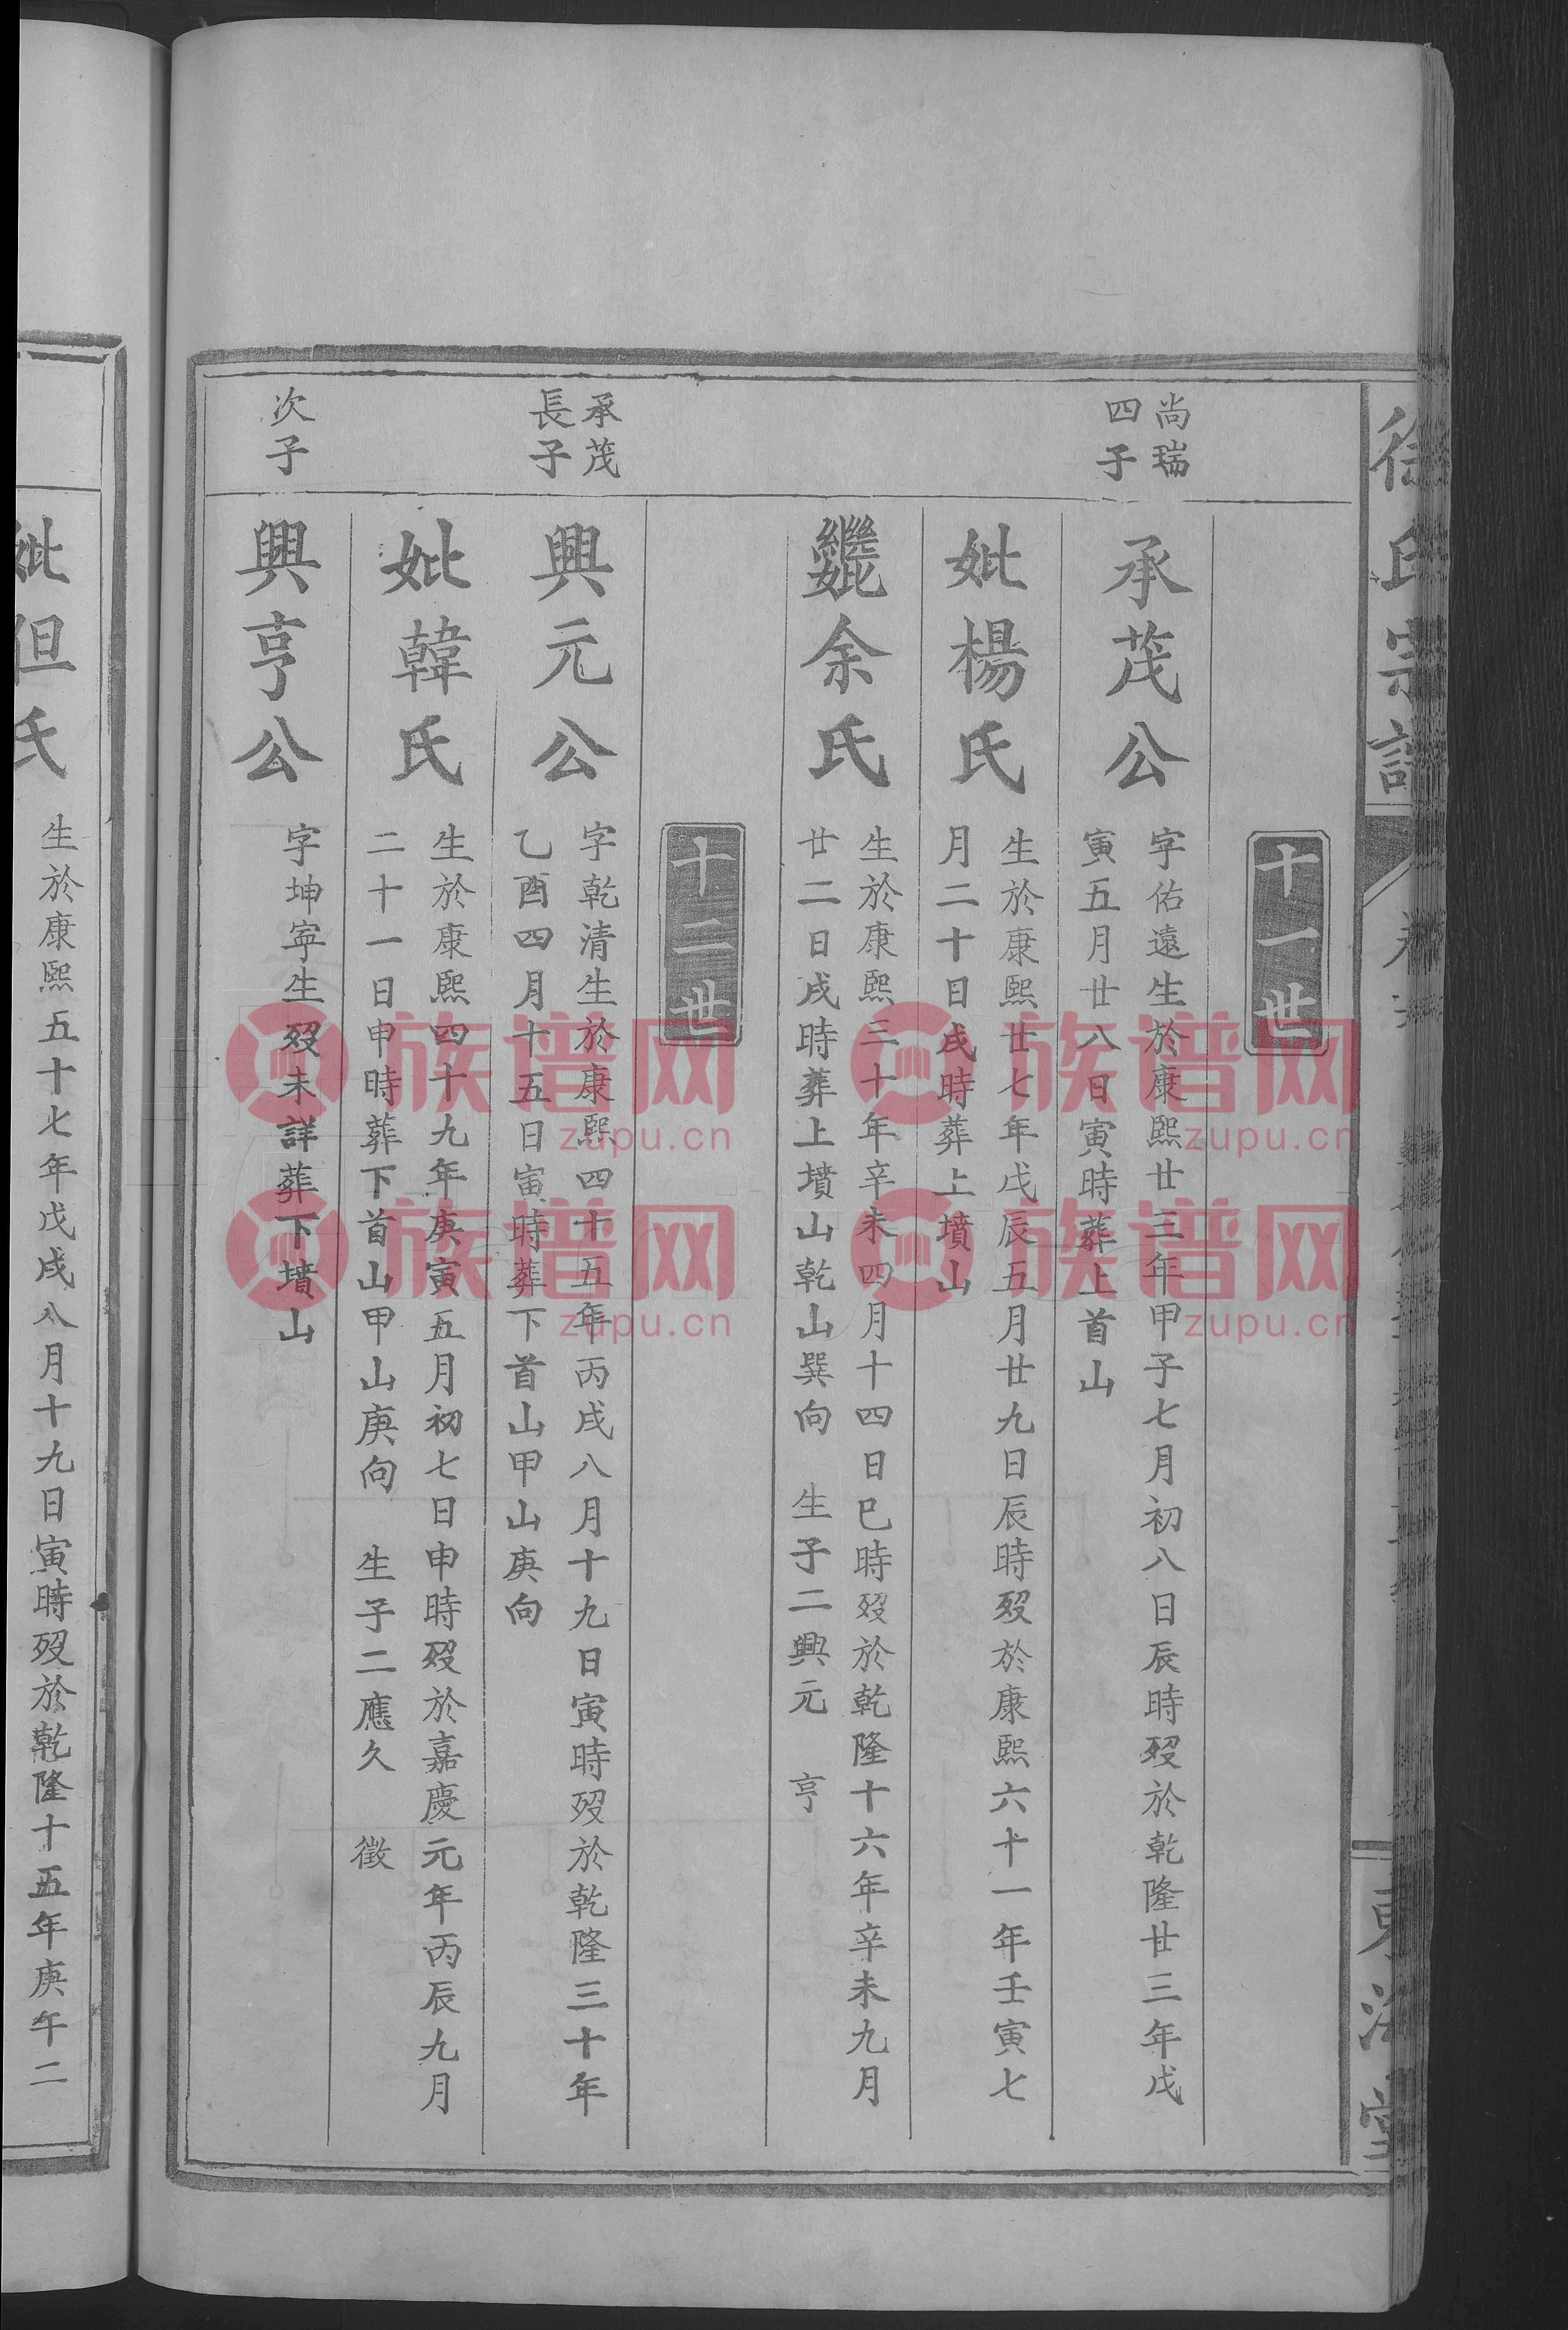 徐氏宗譜
東海堂
十一世
尚瑞
四子
承茂公
字佑遠生於康熙廿三年甲子七月初八日辰時歿於乾隆廿三年戊
寅五月廿八日寅時葬上首山
妣楊氏
生於康熙廿七年戊辰五月廿九日辰時歿於康熙六十一年壬寅七
月二十日戌時葬上墳山
繼妣余氏
生於康熙三十年辛未四月十四日巳時歿於乾隆十六年辛未九月
廿二日戌時葬上墳山乾山巽向 生子二興元 亨
十二世
承茂
長子
興元公
字乾清生於康熙四十五年丙戌八月十九日寅時歿於乾隆三十年
乙酉四月十五日寅時葬下首山甲山庚向
妣韓氏
生於康熙四十九年庚寅五月初七日申時歿於嘉慶元年丙辰九月
二十一日申時葬下首山甲山庚向 生子二應久 徵
次子
興亨公
字坤寧生歿未詳葬下墳山
妣但氏
生於康熙五十七年戊戌八月十九日寅時歿於乾隆十五年庚午二
族谱网
zupu.cn
族谱网
zupu.cn
族谱网
zupu.cn
族谱网
zupu.cn